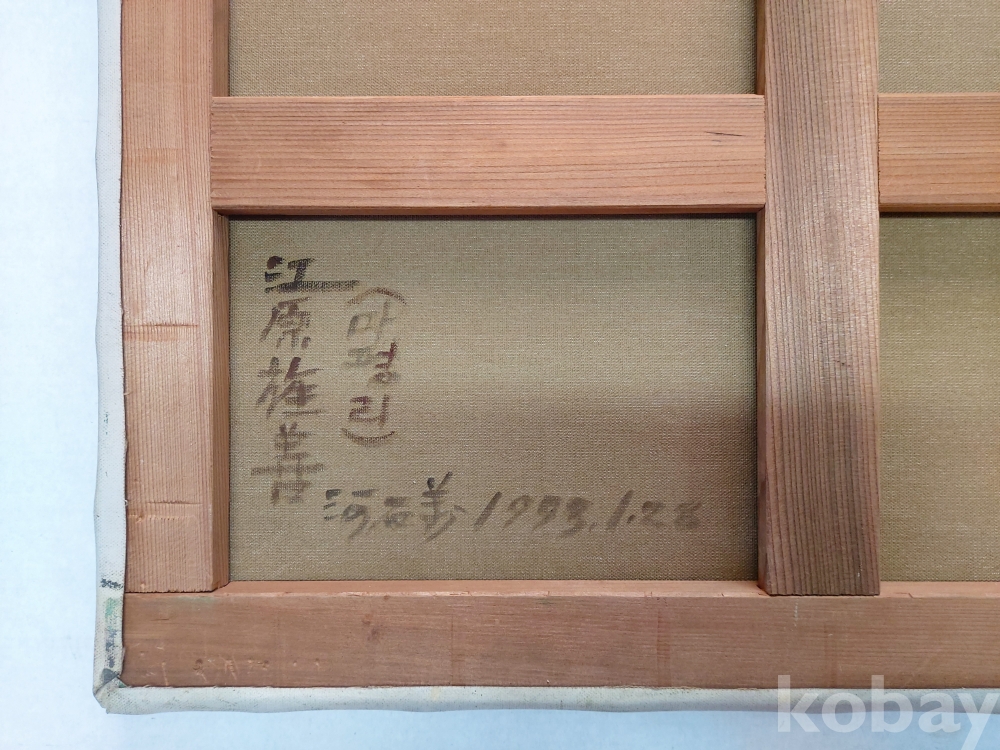 江原旌善
(마평리)
河石 1993.1.28
kobay